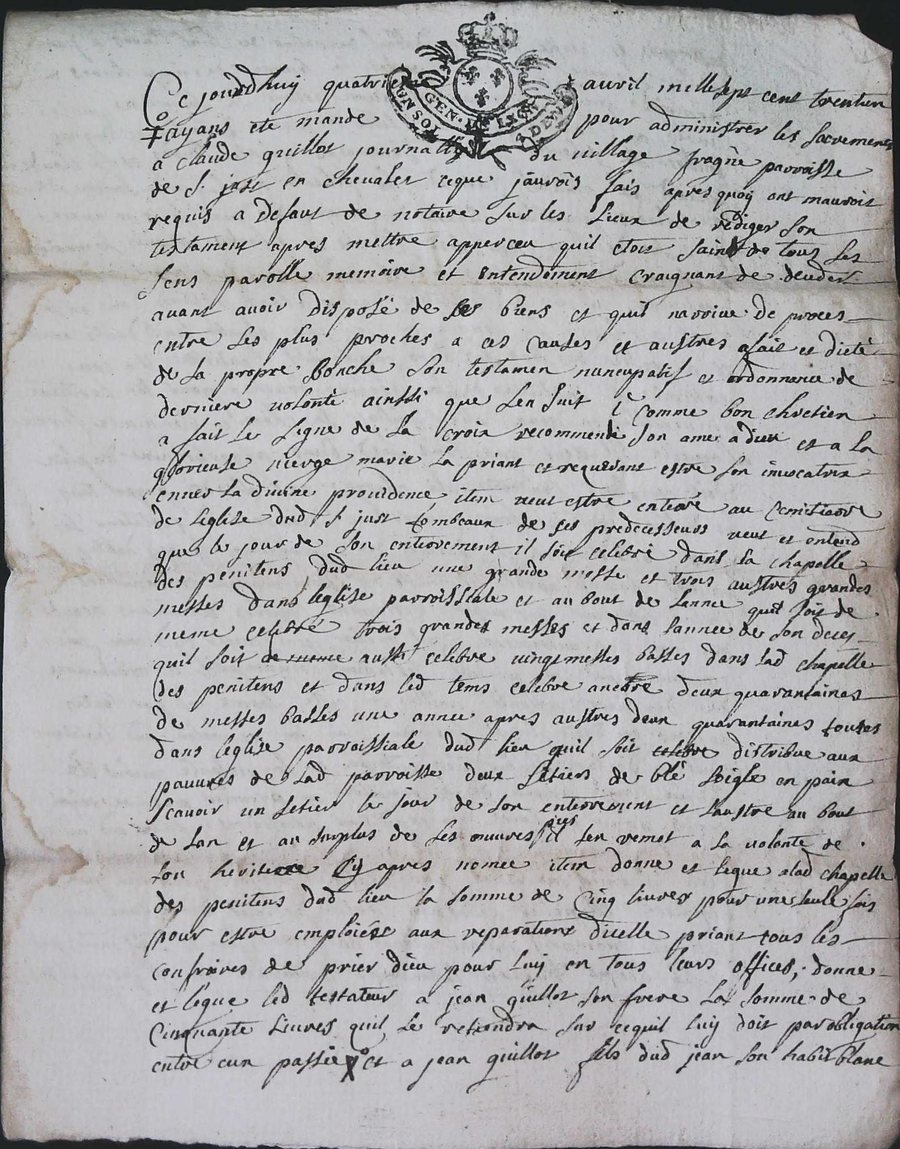 Ce jourdhuy quatrie avril mille sept cent trentun
Jayans ete mande pour administrer les sacrements
a Claude guillot journallier du village fragne parroisse
de St just en chevalet ceque jaurois fais apres quoy ont mauroit
requis a defaut de notaire sur les lieux de rediger son
testament apres mettre apperceu quil etoit saint de tous ses
sens parolle memoire et entendement craignant de deceder
avant avoir disposé de ses biens et quil narrive de proces
entre ses plus proches a ces causes et austres a fait et dicté
de sa propre bouche son testamen nuncupatif et ordonnance de
derniere volonté ainssi que sen suit comme bon chretien
a fait le signe de la croix recommendé son ame a dieu et a la
glorieuse vierge marie la priant et requerant estre son invocatrix
envers la divine providence item veut estre enterré au cemitiaire
de leglise dud St just tombeaux de ses predecesseurs veut et entend
que le jour de son enterrement il soit celebré dans la chapelle
des penitens dud lieu une grande messe et trois austres grandes
messes dans leglise parroissiale et au bout de lannee quil soit de
meme celebré trois grandes messes et dans lannee de son deces
quil soit de meme aussi celebre vingt messes basses dans lad chapelle
des penitens et dans led tems celebre ancore deux quarantaines
de messes basses une annee apres austres deux quarantaines toutes
dans leglise parroissiale dud lieu quil soit celebre distribue aux
pauvres de lad parroisse deux setiers de blé seigle en pain
scavoir un setier le jour de son enterrement et laustre au bout
de lan et au surplus de ses œuvres pies il sen remet a la volonte de
son heritiere cy apres nomee item donne et legue a lad chapelle
des penitens dud lieu la somme de cinq livres pour une seule fois
pour estre emploiées aux reparations dicelle priant tous les
confraires de prier dieu pour luy en tous leurs offices, donne
et legue led testateur a jean guillot son frere la somme de
cinquante livres quil le retiendra sur cequil luy doit par obligation
entre eux passée et a jean guillot fils dud jean son habit blanc